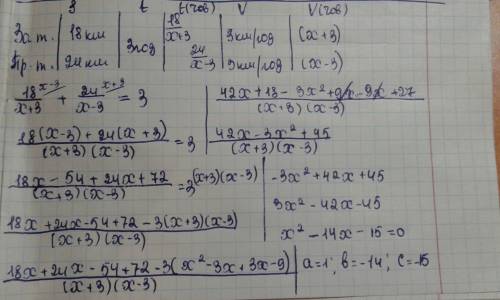 S t t(чов) V V(чов)
За т. 18 км 3 год 18/x+3 3 км/год (x+3)
Пр. т. 24 км 24/x-3 3 км/год (x-3)
18^{x-3}/x+3 + 24^{x+3}/x-3 = 3
18(x-3)+24(x+3)/(x+3)(x-3) = 3
18x-54+24x+72/(x+3)(x-3) = 3^{(x+3)(x-3)}
18x+24x-54+72-3(x+3)(x-3)/(x+3)(x-3)
18x+24x-54+72-3(x²-3x+3x-9)/(x+3)(x-3)
42x+18-3x²+9x-9x+27/(x+3)(x-3)
42x-3x²+45/(x+3)(x-3)
-3x²+42x+45
3x²-42x-45
x²-14x-15=0
a=1; b=-14; c=-15